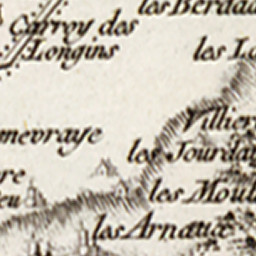 les Berdau
Carroy des
Longins
les Lo
Villier
nevraye
les Jourdai
re
les Moul
eu
les Arnaux